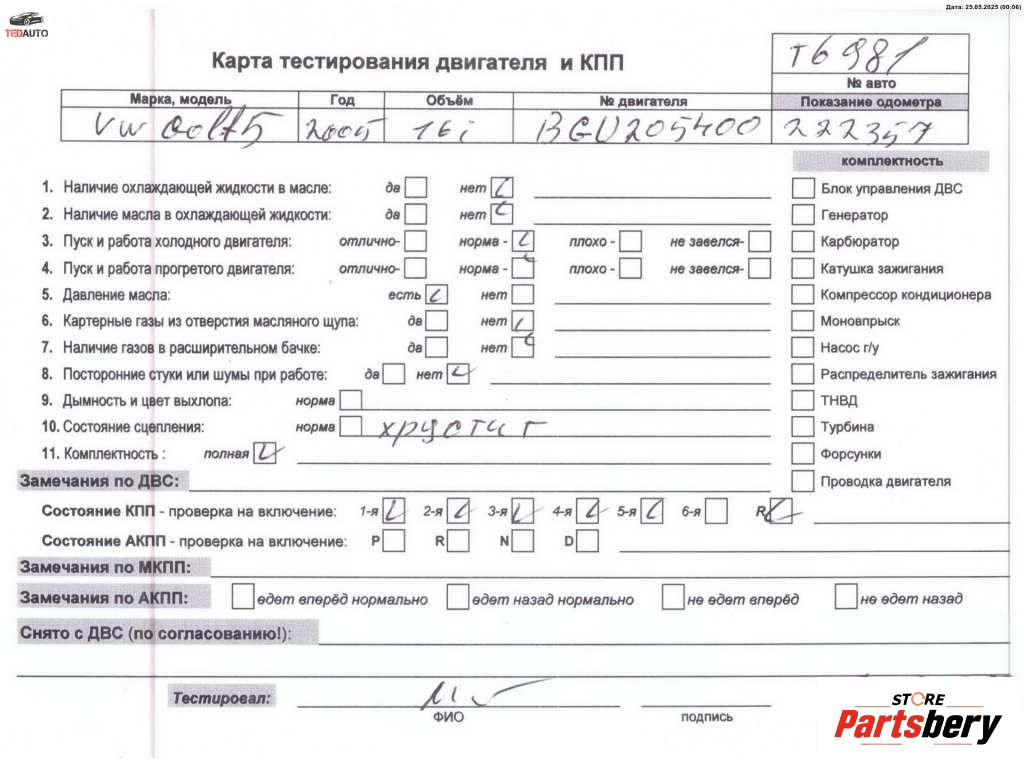 Дата: 25.05.2025 (00:06)
TEDAUTO
Карта тестирования двигателя и КПП
T6981
№ авто
Марка, модель Год Объём № двигателя Показание одометра
VW Golf 5 2005 16i BGU205400 222357
комплектность
1. Наличие охлаждающей жидкости в масле: да нет Блок управления ДВС
2. Наличие масла в охлаждающей жидкости: да нет Генератор
3. Пуск и работа холодного двигателя: отлично- норма - плохо - не завелся- Карбюратор
4. Пуск и работа прогретого двигателя: отлично- норма - плохо - не завелся- Катушка зажигания
5. Давление масла: есть нет Компрессор кондиционера
6. Картерные газы из отверстия масляного щупа: да нет Моновпрыск
7. Наличие газов в расширительном бачке: да нет Насос г/у
8. Посторонние стуки или шумы при работе: да нет Распределитель зажигания
9. Дымность и цвет выхлопа: норма ТНВД
10. Состояние сцепления: норма хрустит Турбина
11. Комплектность : полная Форсунки
Замечания по ДВС: Проводка двигателя
Состояние КПП - проверка на включение: 1-я 2-я 3-я 4-я 5-я 6-я R
Состояние АКПП - проверка на включение: P R N D
Замечания по МКПП:
Замечания по АКПП: едет вперёд нормально едет назад нормально не едет вперёд не едет назад
Снято с ДВС (по согласованию!):
Тестировал:
ФИО подпись
STORE
Partsbery